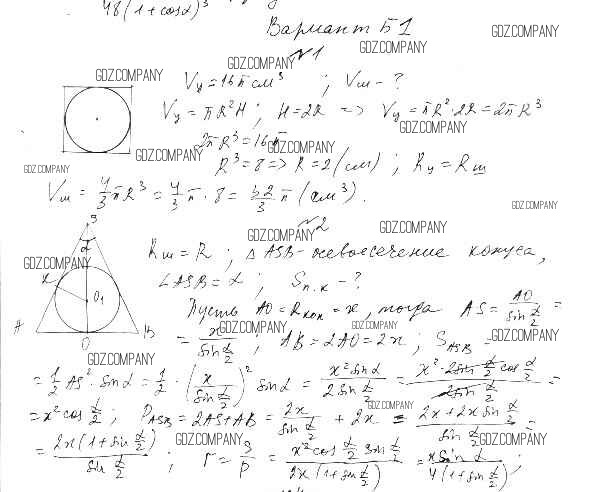 48(1+cosα)³
Вариант Б1
GDZ.COMPANY
GDZ.COMPANY
№1
GDZ.COMPANY
GDZ.COMPANY
Vц = 16π см³ ; Vш - ?
Vц = πR²H ; H = 2R => Vц = πR²·2R = 2πR³
GDZ.COMPANY
2πR³ = 16π
GDZ.COMPANY
GDZ.COMPANY
R³ = 8 => R = 2 (см) ; Rц = Rш
GDZ.COMPANY
Vш = 4/3 πR³ = 4/3 π · 8 = 32/3 π (см³).
GDZ.COMPANY
S
№2
GDZ.COMPANY
GDZ.COMPANY
α
Rш = R ; △ASB - осевое сечение конуса,
GDZ.COMPANY
K
∠ASB = α ; Sп.к - ?
O₁
Пусть AO = Rкон = x, тогда AS = AO/sin α/2 =
A O B
GDZ.COMPANY
GDZ.COMPANY
= x/sin α/2 ; AB = 2AO = 2x ; S_ASB =
GDZ.COMPANY
GDZ.COMPANY
= 1/2 AS² · sin α = 1/2 · (x/sin α/2)² sin α = x² sin α/2 sin α/2 = x² · 2 sin α/2 cos α/2 / 2 sin α/2 =
GDZ.COMPANY
= x² cos α/2 ; P_ASB = 2AS + AB = 2x/sin α/2 + 2x = 2x + 2x sin α/2 / sin α/2 =
GDZ.COMPANY
GDZ.COMPANY
= 2x(1 + sin α/2)/sin α/2 ; r = S/P = x² cos α/2 sin α/2 / 2x(1 + sin α/2) = x sin α/4(1 + sin α/2) ;